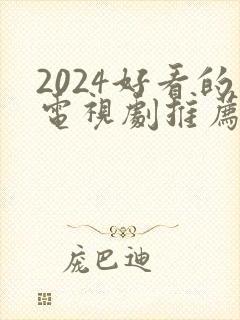 2024好看的
電視劇推薦
庞巴迪